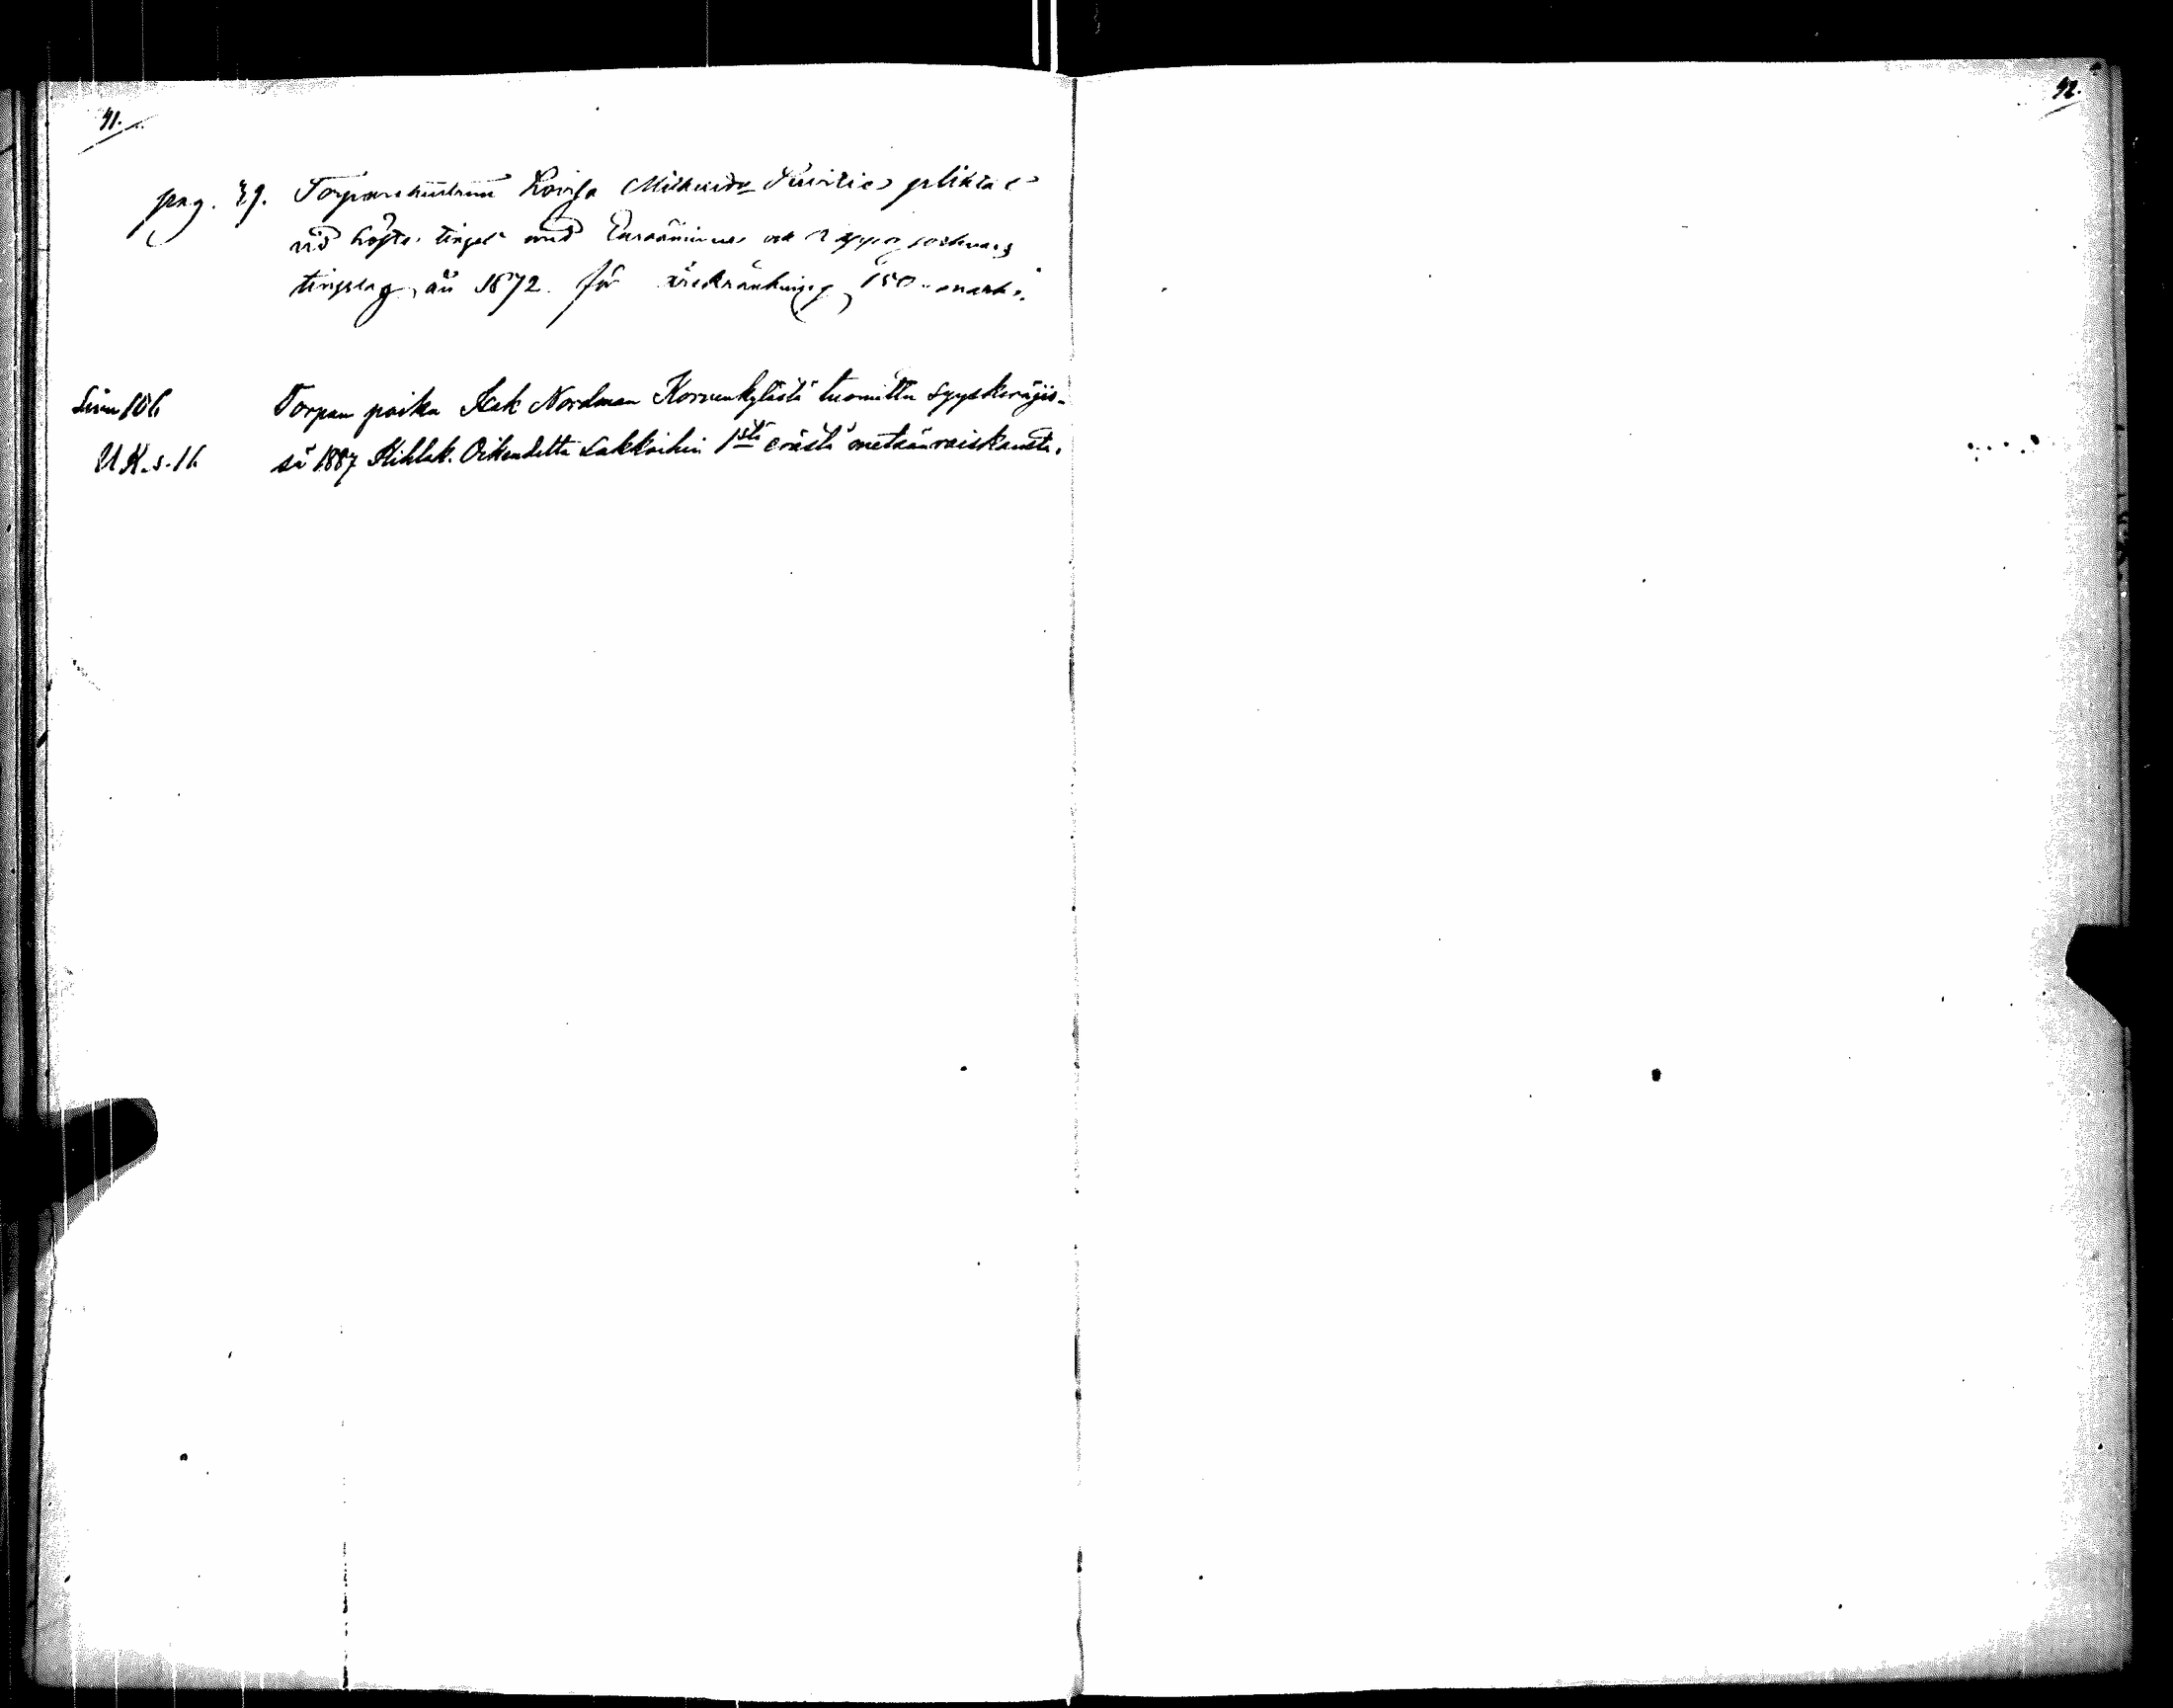 41.
42.
pag. 39. Torparehustrun Lovisa Milhida pliktat
vid höste tinget med Euraäminne och socknars
tingslag år 1872 för ärekränkning 150 mark.
Sivu 106 Torpan poika Isak Nordman Korvenkylästä tuomittu syyskäräjis-
U.K.s.16 sä 1887 Kihlak. Oikeudelta sakkoihin 1stä erästä metsänraiskausta.